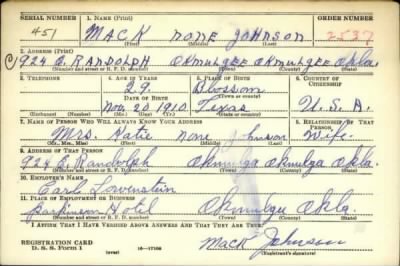 SERIAL NUMBER 1. NAME (Print) ORDER NUMBER
451 MACK none JOHNSON 2537
(First) (Middle) (Last)
2. ADDRESS (Print)
924 E. RANDOLPH OKMULGEE OKMULGEE Okla.
(Number and street or R. F. D. number) (Town) (County) (State)
3. TELEPHONE 4. AGE IN YEARS 5. PLACE OF BIRTH 6. COUNTRY OF CITIZENSHIP
29 Blossom
DATE OF BIRTH (Town or county)
Nov. 20, 1910 Texas U.S.A.
(Mo.) (Day) (Yr.) (State or country)
7. NAME OF PERSON WHO WILL ALWAYS KNOW YOUR ADDRESS 8. RELATIONSHIP OF THAT PERSON
Mrs. Katie none Johnson Wife
(Mr., Mrs., Miss) (First) (Middle) (Last)
9. ADDRESS OF THAT PERSON
924 E. Randolph Okmulga Okmulga Okla.
(Number and street or R. F. D. number) (Town) (County) (State)
10. EMPLOYER'S NAME
Earl Lowenstein
11. PLACE OF EMPLOYMENT OR BUSINESS
Parkinson Hotel Okmulgu Okla.
(Number and street or R. F. D. number) (Town) (County) (State)
I AFFIRM THAT I HAVE VERIFIED ABOVE ANSWERS AND THAT THEY ARE TRUE.
REGISTRATION CARD
D. S. S. Form 1 (over) 16—17105 Mack Johnson
(Registrant's signature)